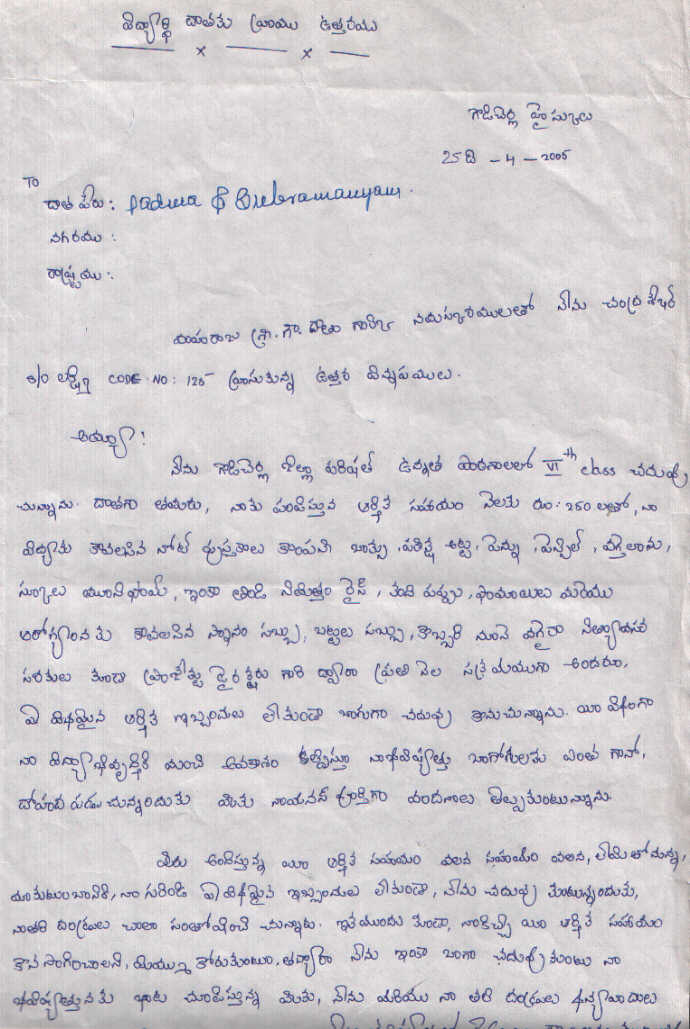 విద్యార్థి దాతకు వ్రాయు ఉత్తరము
గాడిచెర్ల హై స్కూలు
25 ది - 4 - 2005
TO
దాత పేరు: Padma & Subramanyam.
నగరము :
రాష్ట్రము :
మహారాజ శ్రీ. గౌ. దాత గారికి నమస్కారములతో నేను చంద్ర శేఖర్
S/O లక్ష్మి CODE NO: 125 వ్రాసుకున్న ఉత్తర విన్నపములు.
అయ్యా!
నేను గాడిచెర్ల జిల్లా పరిషత్ ఉన్నత పాఠశాలలో VI th class చదువు
చున్నాను. దాతగా తమరు, నాకు పంపిస్తున్న ఆర్థిక సహాయం నెలకు రూ: 250 లతో, నా
విద్యకు కావలసిన నోట్ పుస్తకాలు కాంపాస్ బాక్సు, పరీక్ష అట్ట, పెన్ను, పెన్సిల్, పలకలు,
స్కూలు యూనిఫామ్, ఇంకా తిండి నిమిత్తం రైస్, కంది పప్పు, మరియు
ఆరోగ్యానికి కావలసిన స్నానం సబ్బు, బట్టల సబ్బు, కొబ్బరి నూనె వగైరా నిత్యావసర
సరకులు కూడా ప్రాజెక్టు డైరక్టరు గారి ద్వారా ప్రతి నెల సక్రమముగా అందడం,
ఏ విధమైన ఆర్థిక ఇబ్బందులు లేకుండా బాగుగా చదువు కొనుచున్నాను. యీ విధంగా
నా విద్యాభివృద్ధికి మంచి అవకాశం కల్పిస్తూ నా భవిష్యత్తు బాగోగులకు ఎంత గానో,
దోహద పడు చున్నందుకు మీకు పూర్తిగా వందనాలు తెల్పుకుంటున్నాను.
మీరు అందిస్తున్న యీ ఆర్థిక సహాయం వలన, లేమి తో వున్న,
మా కుటుంబానికి, నా గురించి ఏ విధమైన ఇబ్బందులు లేకుండా, నేను చదువు కుంటున్నందుకు,
నా తల్లి దండ్రులు చాలా సంతోషించు చున్నారు. ఇక ముందు కూడా, నాకిచ్చే యీ ఆర్థిక సహాయం
కొన సాగించాలని, మిమ్ము కోరుకుంటూ, తద్వారా నేను ఇంకా బాగా చదువు కుంటు నా
భవిష్యత్తునకు బాట చూపిస్తున్న మీకు, నేను మరియు నా తల్లి దండ్రులు ధన్యవాదాలు